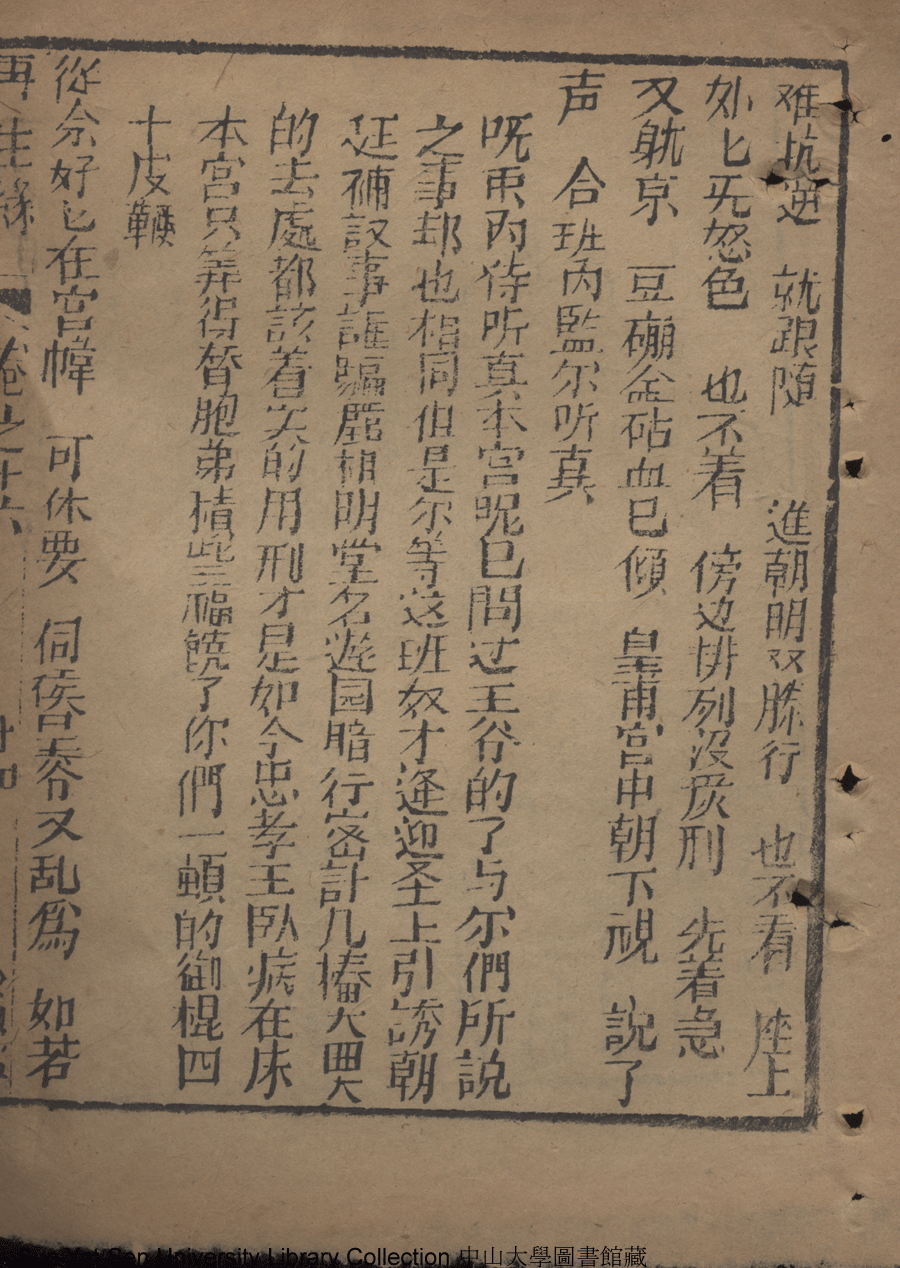 难抗逆　就跟随　進朝明双膝行　也不看　座上
如匕旡怒色　也不着　傍边排列没炭刑　先着急
又躭京　豆磞金砧血已傾　皇甫宮中朝下視　說了
声　合班内監尔听真
呒東内待听真本宮呢已問过王爷的了与尔們所說
之事却也相同但是尔等这班奴才逢迎圣上引誘朝
廷補設事誰騙鹿相明堂名遊园暗行宻計几樁大罪
的去處都該着实的用刑才是如今忠孝王臥病在床
本宮只筭得替胞弟積些福饒了你們一頓的御棍四
十皮鞭
從今好匕在宮幃　可休要　伺侯又乱為　如若
再生緣　卷之十六
Sun Yat-Sen University Library Collection 中山大學圖書館藏